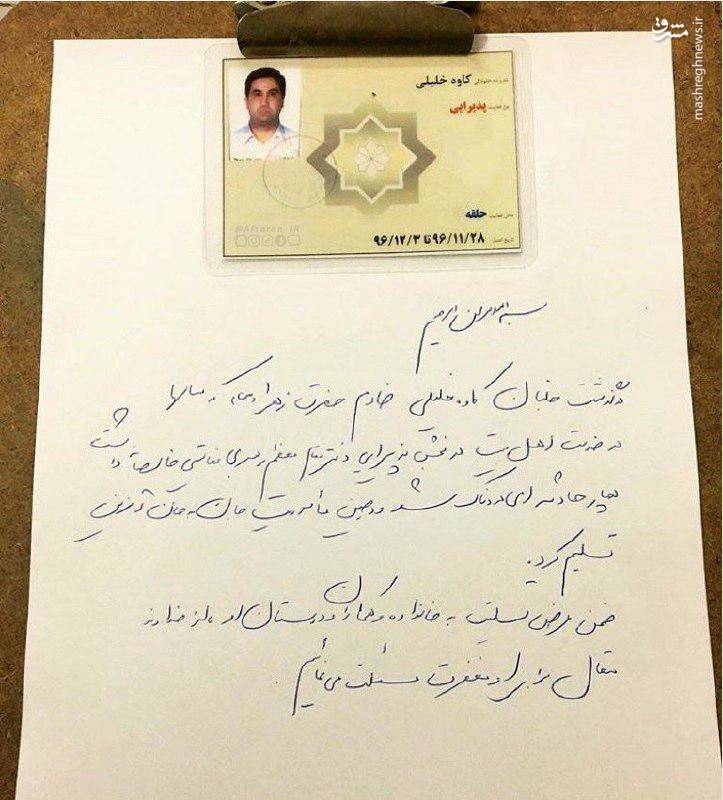 مشرق
mashreghnews.ir
نام و نام خانوادگی کاوه خلیلی
نوع فعالیت پذیرایی
محل فعالیت حلقه
تاریخ اعتبار ۹۶/۱۱/۲۸ تا ۹۶/۱۲/۳
@Afsaran_IR
بسم الله الرحمن الرحیم
درگذشت کاوه خلیلی خادم حضرت زهرا که سالها
در خدمت اهل بیت در بخش پذیرایی دفتر مقام معظم رهبری فعالیتی خالصانه داشت
دچار حادثه ای دردناک شد و در حین مأموریت جان به جان آفرین
تسلیم کرد.
ضمن عرض تسلیت به خانواده و همکاران و دوستان او از خداوند
متعال برای او مغفرت مسئلت می نمائیم